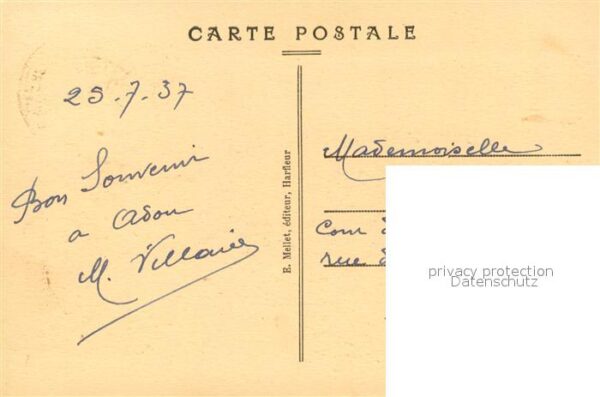 CARTE POSTALE
25.7.37
Bon Souvenir
a
M.
E. Mellet, éditeur, Harfleur
Mademoiselle
Cour
rue
privacy protection
Datenschutz